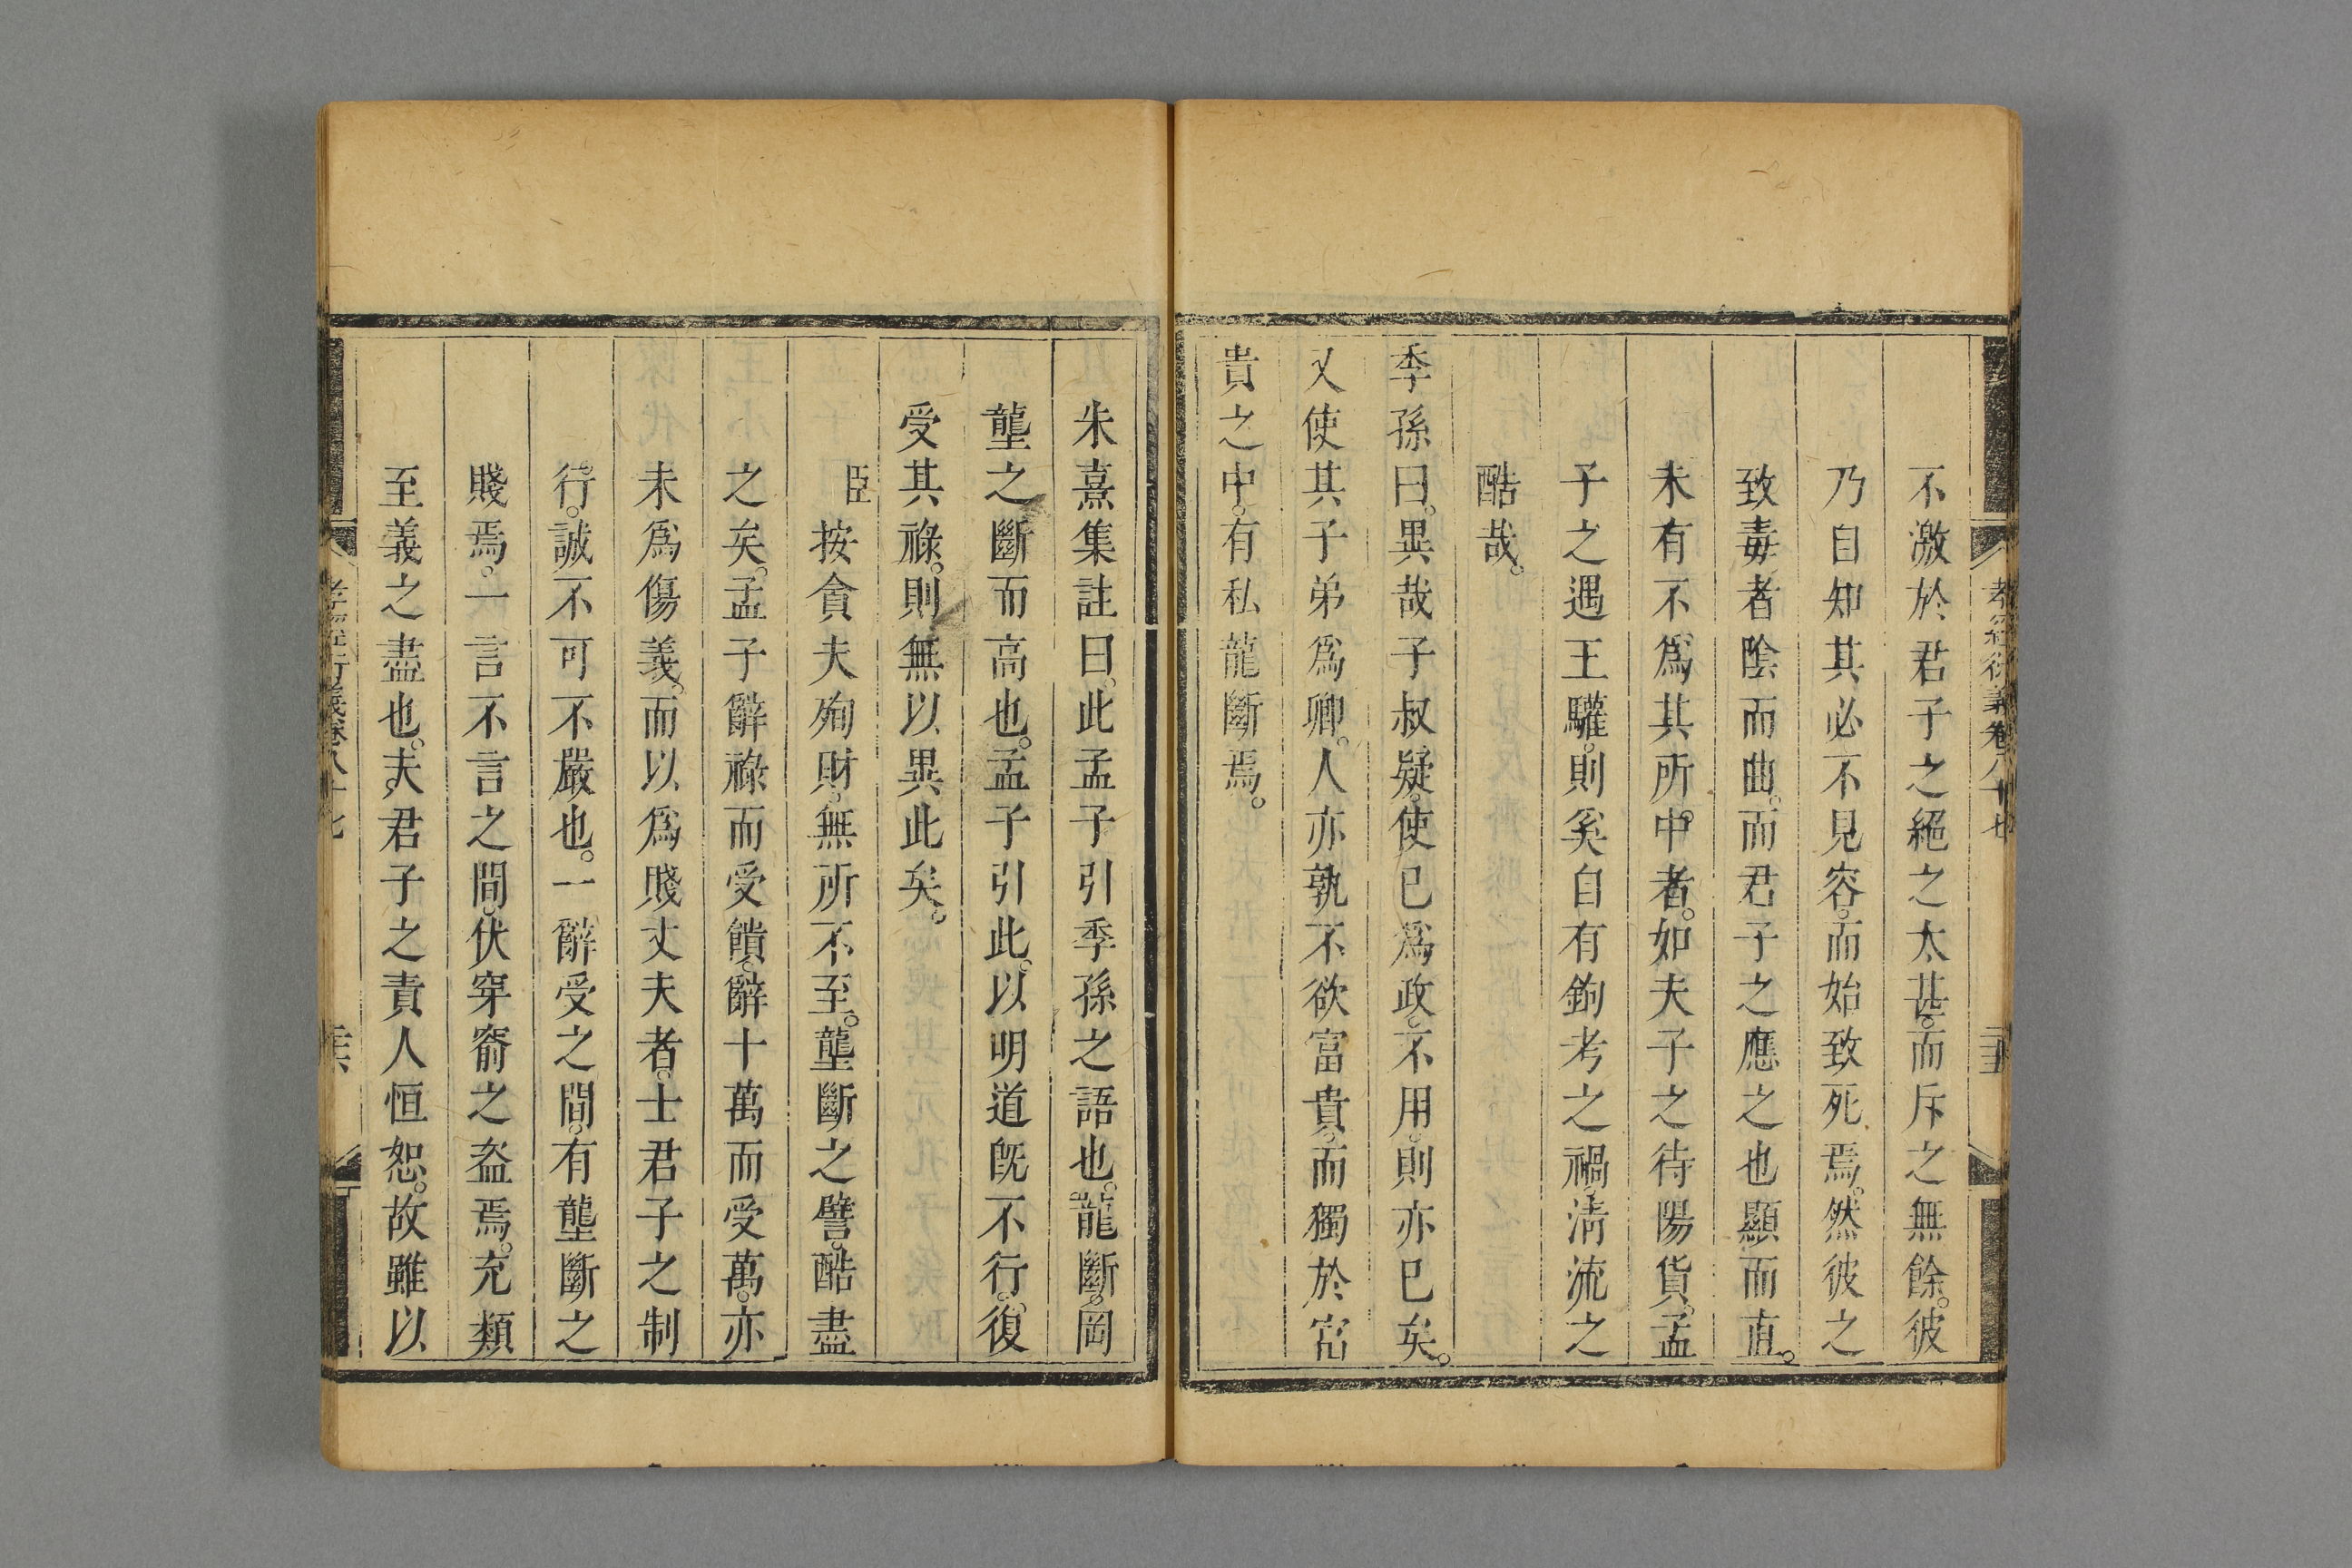 孝經衍義卷八十七
不激於君子之絕之太甚。而斥之無餘。彼
乃自知其必不見容。而始致死焉。然彼之
致毒者陰而曲。而君子之應之也顯而直。
未有不爲其所中者。如夫子之待陽貨。孟
子之遇王驩。則奚自有鉤考之禍。淸流之
酷哉。
季孫曰。異哉子叔疑。使已爲政。不用。則亦已矣。
又使其子弟爲卿。人亦孰不欲富貴。而獨於富
貴之中。有私龍斷焉。
朱熹集註曰。此孟子引季孫之語也。龍斷。岡
壟之斷而高也。孟子引此。以明道旣不行。復
受其祿。則無以異此矣。
臣按貪夫殉財。無所不至。壟斷之譬。酷盡
之矣。孟子辭祿而受饋。辭十萬而受萬。亦
未爲傷義。而以爲賤丈夫者。士君子之制
行。誠不可不嚴也。一辭受之間。有壟斷之
賤焉。一言不言之間。伏穿窬之盜焉。充類
至義之盡也。夫君子之責人恒恕。故雖以
孝經衍義卷八十七